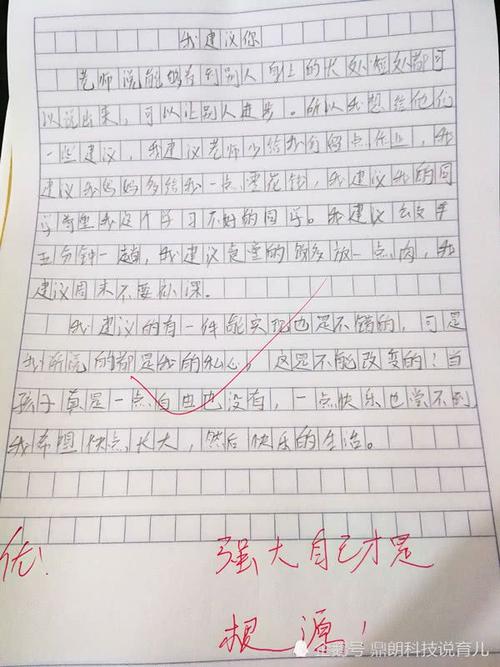 我建议你
老师说能够看到别人身上的长处短处都可
以说出来，可以让别人进步。所以我想给他们
一些建议，我建议老师少给我们留点作业，我
建议我妈妈多给我一点零花钱，我建议我的同
学喜欢我这个学习不好的同学。我建议公交车
五分钟一趟，我建议食堂的饭多放一点肉，我
建议周末不要补课。
我建议的有一件能实现也是不错的，可是
我所说的都是我的私心，这是不能改变的！当
孩子真是一点自由也没有，一点快乐也尝不到
我希望快点长大，然后快乐的生活。
优！
强大自己才是
根源！
鼎朗科技说育儿